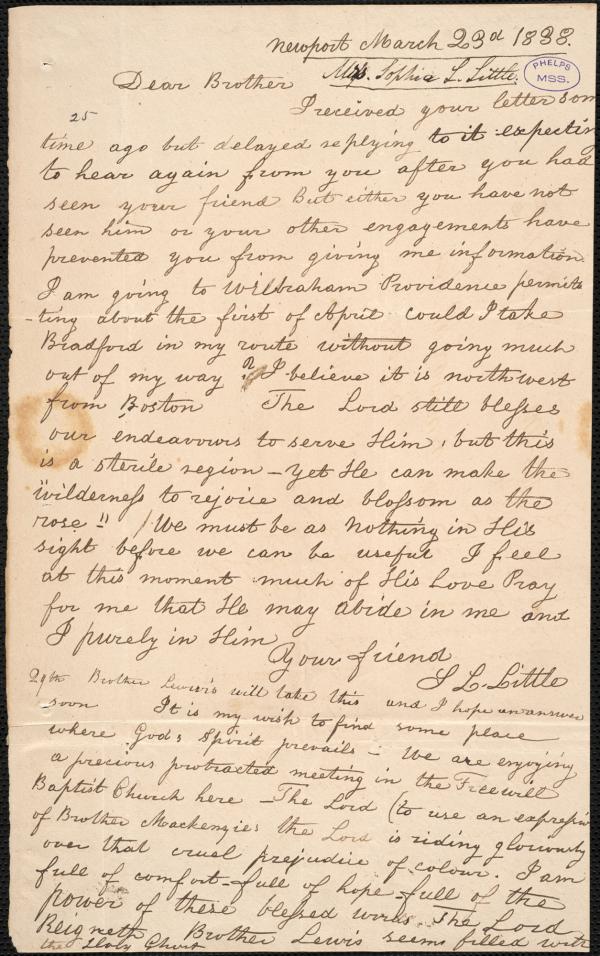 Newport March 23d 1838.
Mrs. Sophia L. Little.
PHELPS
MSS.
Dear Brother
I received your letter som
25
time ago but delayed replying to it expecting
to hear again from you after you had
seen your friend But either you have not
seen him or your other engagements have
prevented you from giving me information
I am going to Wilbraham Providence permit
-ting about the first of April could I take
Bradford in my route without going much
out of my way? I believe it is northwest
from Boston The Lord still blesses
our endeavours to serve Him, but this
is a sterile region - yet He can make the
"wilderness to rejoice and blossom as the
rose" We must be as nothing in His
sight before we can be useful I feel
at this moment much of His Love Pray
for me that He may abide in me and
I purely in Him
Your friend
S L. Little
29th Brother Lewis will take this and I hope an answer
soon It is my wish to find some place
where Gods Spirit prevails - We are enjoying
a precious protracted meeting in the Freewill
Baptist Church here - The Lord (to use an expression
of Brother Mackenzies the Lord is riding gloriously
over that cruel prejudice of colour. I am
full of comfort - full of hope - full of the
power of these blessed words The Lord
Reigneth Brother Lewis seems filled with
the Holy Ghost